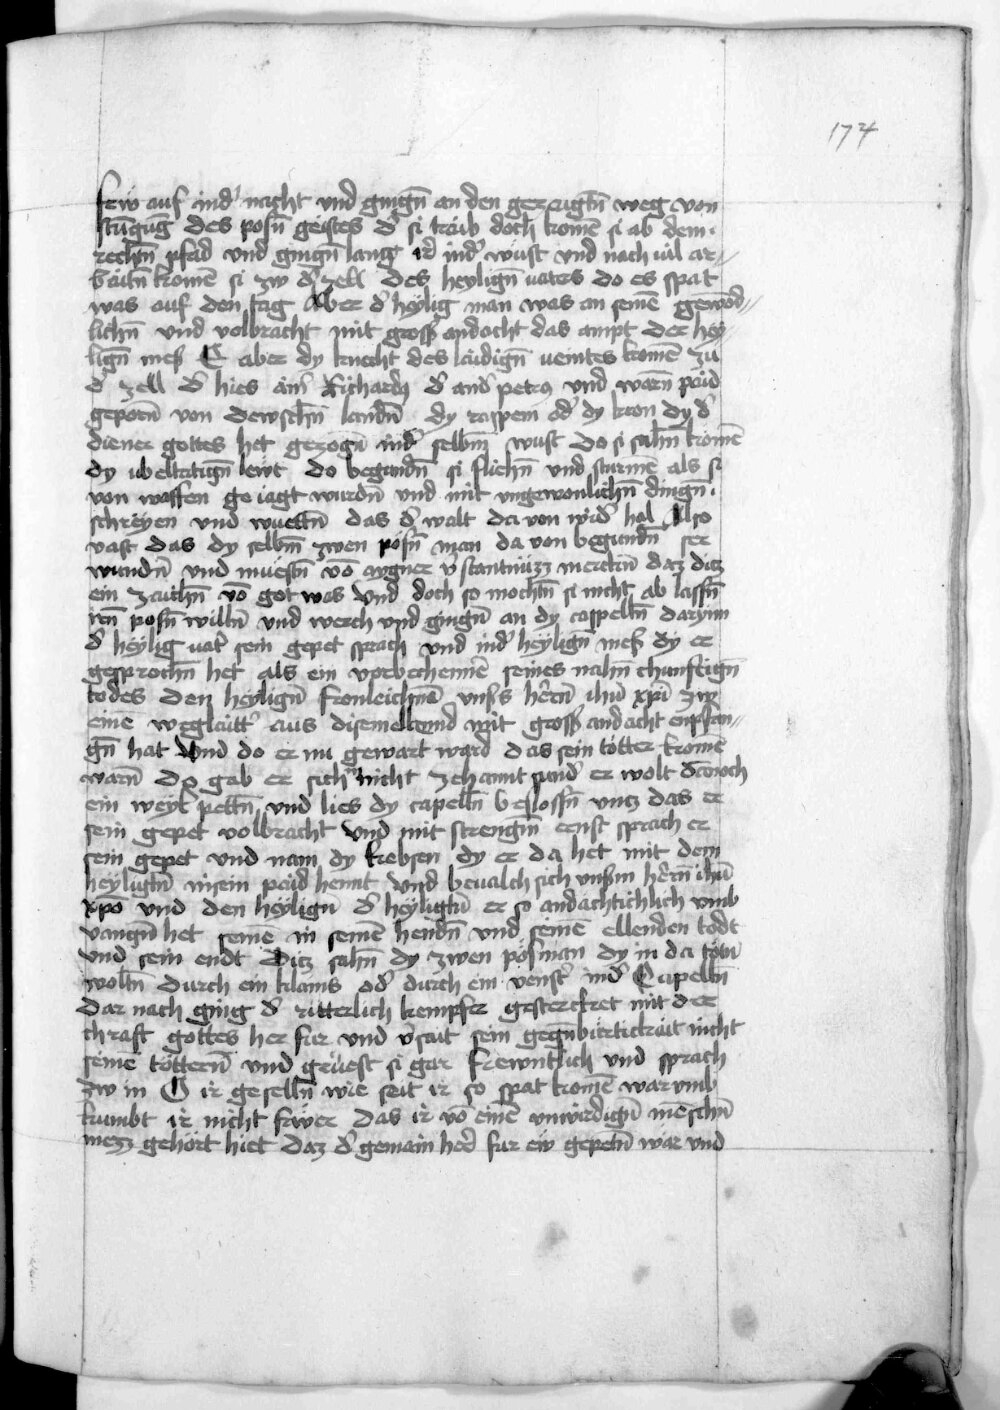 174
sew auf in d' nacht vnd gingn̄ an den gezaigtn̄ weg von
stūgūg des posn̄ geistes d' si traib doch komē si ab dem
rechtn̄ pfad vnd gingn̄ lang ir' in d' wust vnd nach uil ar//
baitn̄ komē si zw d' zell des heylign̄ uaters do es spat
was auf den tag Aber d' heylig man was an seinē gewond//
lichn̄ vnd volbracht mit gross andacht das ampt der hey//
lign̄ mess C aber dy knecht des laidign̄ veintes komē zu
d' zell d' hies ains Richard9 d' and' petr9 vnd warn̄ paid
geporn̄ von dewschn̄ landn̄ dy rappem od' dy kron dy d'
diener gottes het gezogn̄ in d' selbm̄ wust do si sahn̄ komē
dy ubeltatign̄ lewt do begundn̄ si fliehn̄ vnd sturmē als si
von waffen ge iagt wurdn̄ vnd mit vngewonlichn̄ dingn̄
schreyen vnd wuettn̄ das d' walt da von wid' hal Also
vast das dy selbm̄ zwen posn̄ man da von begundn̄ ser
wundn̄ vnd muestn̄ vō aygner v'stantnüzz merckn̄ daz ditz
ein zaichn̄ vō got was vnd doch so mochtn̄ si nicht ab lassn̄
irn̄ posn̄ willn̄ vnd werch vnd gingn̄ an dy cappelln̄ darynn
d' heylig uat' sein gepet sprach vnd in d' heylign̄ mess dy er
gesprochn̄ het als ein vorbechenner seines nahn̄ chunftign̄
todes den heylign̄ fronleichnā vnsers hern̄ ihū xpī zw
einē weglaitt' aus disem ellennd mit gross andacht enpfan//
gn̄ hat Vnd do er nu gewart ward das sein tötter komē
warn̄ do gab er sich nicht zehannt sund' er wolt dennoch
ein weyl pettn̄ vnd lies dy capelln̄ beslossn̄ vntz das er
sein gepet volbracht Vnd mit strengm̄ ernst sprach er
sein gepet vnd nam dy krebsen dy er da het mit dem
heyligtm̄ in sein paid hennt Vnd beualch sich vnserm hern̄ ihū
xpō vnd den heylign̄ d' heyligtū er so andachtichlich vmb
vangn̄ het seinē in seinē hendn̄ vnd seinē ellenden todt
vnd sein endt Ditz sahn̄ dy zwen pösman dy in da tötn̄
woltn̄ durch ein klains od' durch ein venst' in d' Capelln̄
Dar nach ging d' ritterlich kempfer gesterckcet mit der
chraft gottes her fur vnd v'sait sein gegn̄burtickait nicht
seinē töttern̄ vnd grüest si gar frewntlich vnd sprach
zw in O ir geselln̄ wie seit ir so spat komē warumb
kumbt ir nicht frwer das ir vō einē vnwirdign̄ mēschn̄
mezz gehort hiet daz d' gemain her' fur ew gepetn̄ war vnd